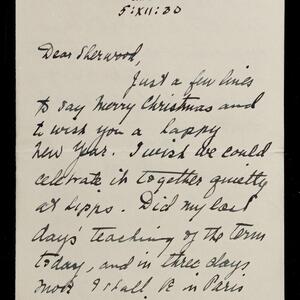 5:XII:30
Dear Sherwood,
Just a few lines
to say Merry Christmas and
to wish you a happy
New Year. I wish we could
celebrate it together quietly
at Lipps. Did my last
day's teaching of the term
today, and in three days
more I shall be in Paris